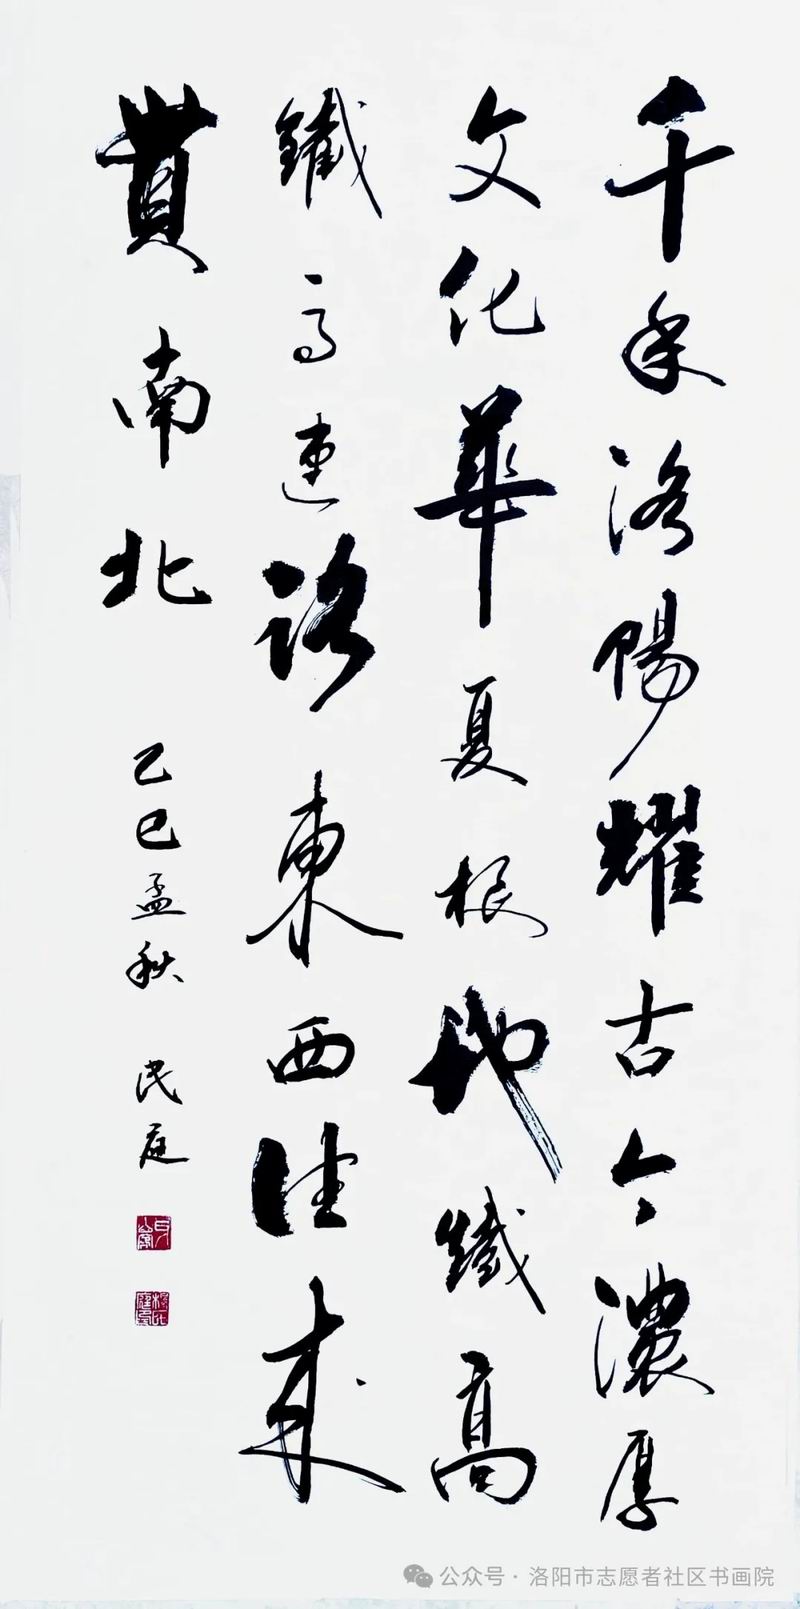 千年洛陽耀古今濃厚
文化華夏根地鐵高
鐵高速路東西往来
貫南北
乙巳孟秋 民庭
公众号·洛阳市志愿者社区书画院